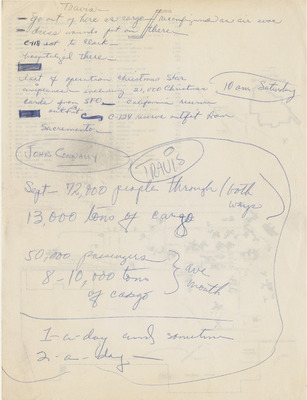 Travis -
- Go out of here as cargo
- doves
C-118 out to Clark -
hospitalized there
- Last of operation Christmas Star
airplanes - 21,000 Christmas
cards from SFC - California reserve
outfit - C-124 reserve outfit from
Sacramento -
10 am Saturday
John Conway
TRAVIS
Sept - 72,000 people through / both
ways
13,000 tons of cargo
50,000 passengers
8 - 10,000 tons
of cargo
ave
month
1-a-day and sometimes
2-a-day -